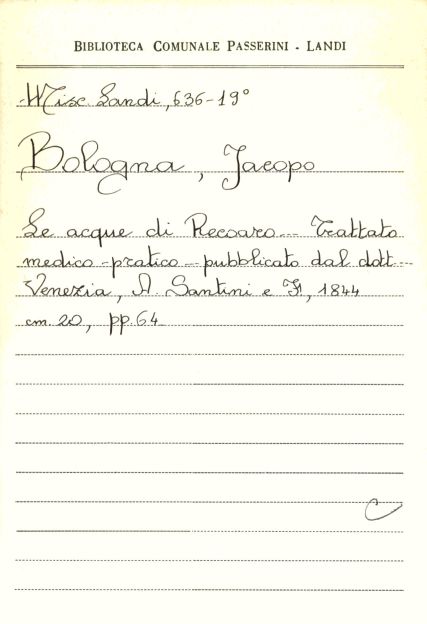 BIBLIOTECA COMUNALE PASSERINI - LANDI
Misc. Landi, 636-19°
Bologna, Jacopo
Le acque di Recoaro... Trattato
medico-pratico - pubblicato dal dott...
Venezia, A. Santini e F., 1844
cm. 20, pp. 64
C